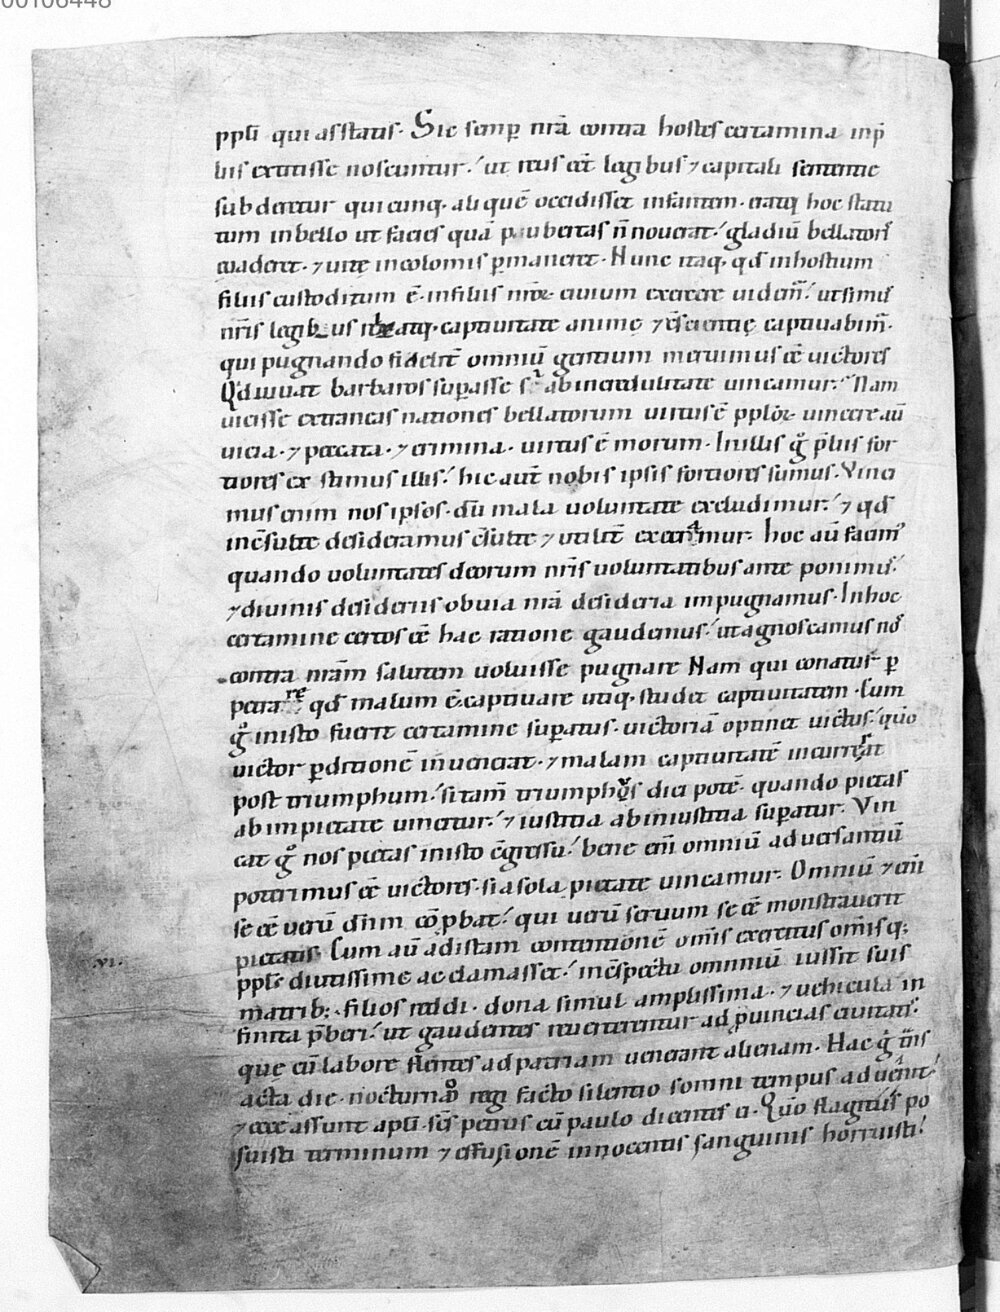 00106448
ppl̅i qui asstatis. Sic semp̲ nr̅a contra hostes certamina inp̲
bis extitisse noscuntur.ʼ ut reus eēt legibus ⁊ capitali sententie
subderetur quicunq. aliquē occidisset infantem. eratq; hoc statu
tum in bello ut facies quā paubertas n̅ noverat.ʼ gladiū bellatoris
evaderet. ⁊ vite incolomis p̲maneret. Hunc itaq. qd̅ in hostium
filiis custoditum ē. in filiis nr̅or̅ civium exercere videm̅.ʼ ut simus
nr̅is legib; us
atq. captivitate anime ⁊ captivabim̅.
qui pugnando omniū gentium meruimus eē victores
Qd iuvat barbaros sup̲asse si ab incredulitate vincamur.ʼ Nam
vicisse extraneas nationes bellatorum virtus ē pplor̅. vincere aū
vicia. ⁊ peccata. ⁊ crimina. virtus ē morum. In illis g° p̅liis for
tiores ex stimus illis.ʼ hic aut̅ nobis ipsis fortiores sumus. Vinci
mus enim nos ipsos. dū mala voluntate excludimur.ʼ ⁊ qd̅
desideramus ⁊ utilit̅ mur. hoc aū facim᾽
quando voluntates deorum nr̅is voluntatibus ante ponimus.ʼ
⁊ divinis desideriis obvia nr̅a desideria impugnamus. In hoc
certamine certos eē hac ratione gaudemus.ʼ ut agnoscamus nos
contra nr̅am salutem voluisse pugnare Nam qui conatus p̲
petrare qd̅ malum ē. captivare utiq. studet captivitatem. Cum
g° in isto fuerit certamine sup̲atus. victoriā optinet victus.ʼ quo
victor p̲ditionē invenerat. ⁊ malam captivitatē incurrerat
post triumphum.ʼ si tam̅ triumphus dici potē. quando pietas
ab impietate vincitur.ʼ ⁊ iustitia ab iniustitia sup̲atur. Vin
cat g° nos pietas in isto ēgressu.ʼ bene em̅ omniū adversantiū
poterimus eē victores. si a sola pietate vincamur. Omniū ⁊ em̅
se eē verū dn̅m cōp̲bat.ʼ qui verū servum se eē monstraverit
pietatis. Cum aū ad istam contentionē omis̅ exercitus omis̅q;
.VI.
ppl̅s diutissime acclamasset.ʼ in ēspectu omnniū iussit suis
matrib; filios reddi. dona simul amplissima. ⁊ vehicula in
finita p̅beri.ʼ ut gaudentes reverterentur ad p̲vincias civitatis.
que cū labore flentes ad patriam venerant alienam. Hac g° t̅nis
acta die. nocturno regi facto silentio somni tempus advenit.ʼ
⁊ ecce assunt apl̅i. sc̅s petrus cū paulo dicentes ei. Quo flagitiis po
suisti terminum ⁊ effusionē innocentis sanguinis horruisti.ʼ